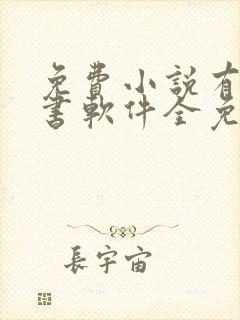 免費小説有
書軟件全免
長宇宙